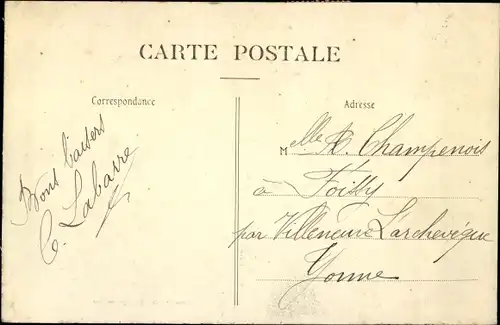 CARTE POSTALE
Correspondance
Bons baisers
C. Labarre
Adresse
Melle R. Champenois
à Foissy
par Villeneuve L'archevêque
Yonne